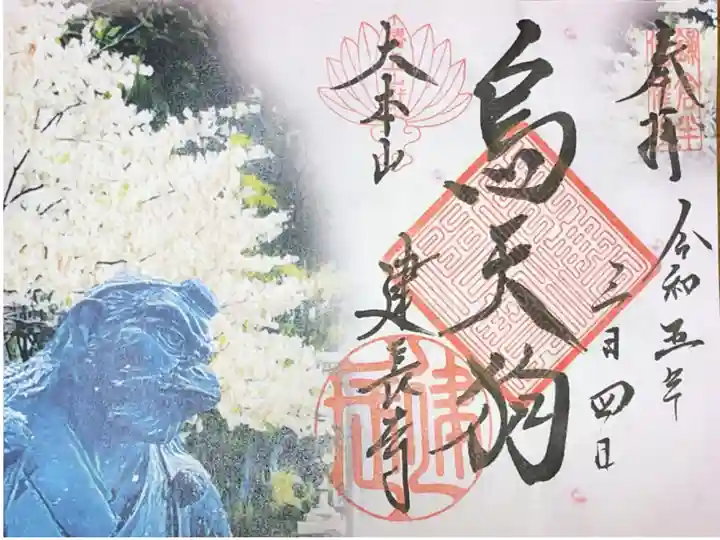 奉拝
令和五年
三月四日
烏天狗
大本山
建長寺